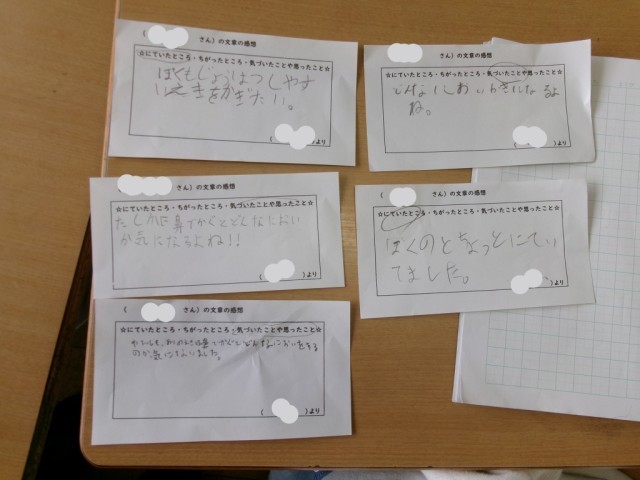 ( さん）の文章の感想
☆にていたところ・ちがったところ・気づいたことや思ったこと☆
ぼくもしょうはつしやす
いえきをかぎたい。
( )より
さん）の文章の感想
☆にていたところ・ちがったところ・気づいたことや思ったこと☆
どんなにおいかきになるよ
ね。
( )より
さん）の文章の感想
☆にていたところ・ちがったところ・気づいたことや思ったこと☆
たしかに鼻でかぐとどんなにおい
か気になるよね!!
( )より
( さん）の文章の感想
☆にていたところ・ちがったところ・気づいたことや思ったこと☆
ぼくのとちょっとにてい
てました。
( )より
( さん）の文章の感想
☆にていたところ・ちがったところ・気づいたことや思ったこと☆
においをする
のか気になりました。
( )より